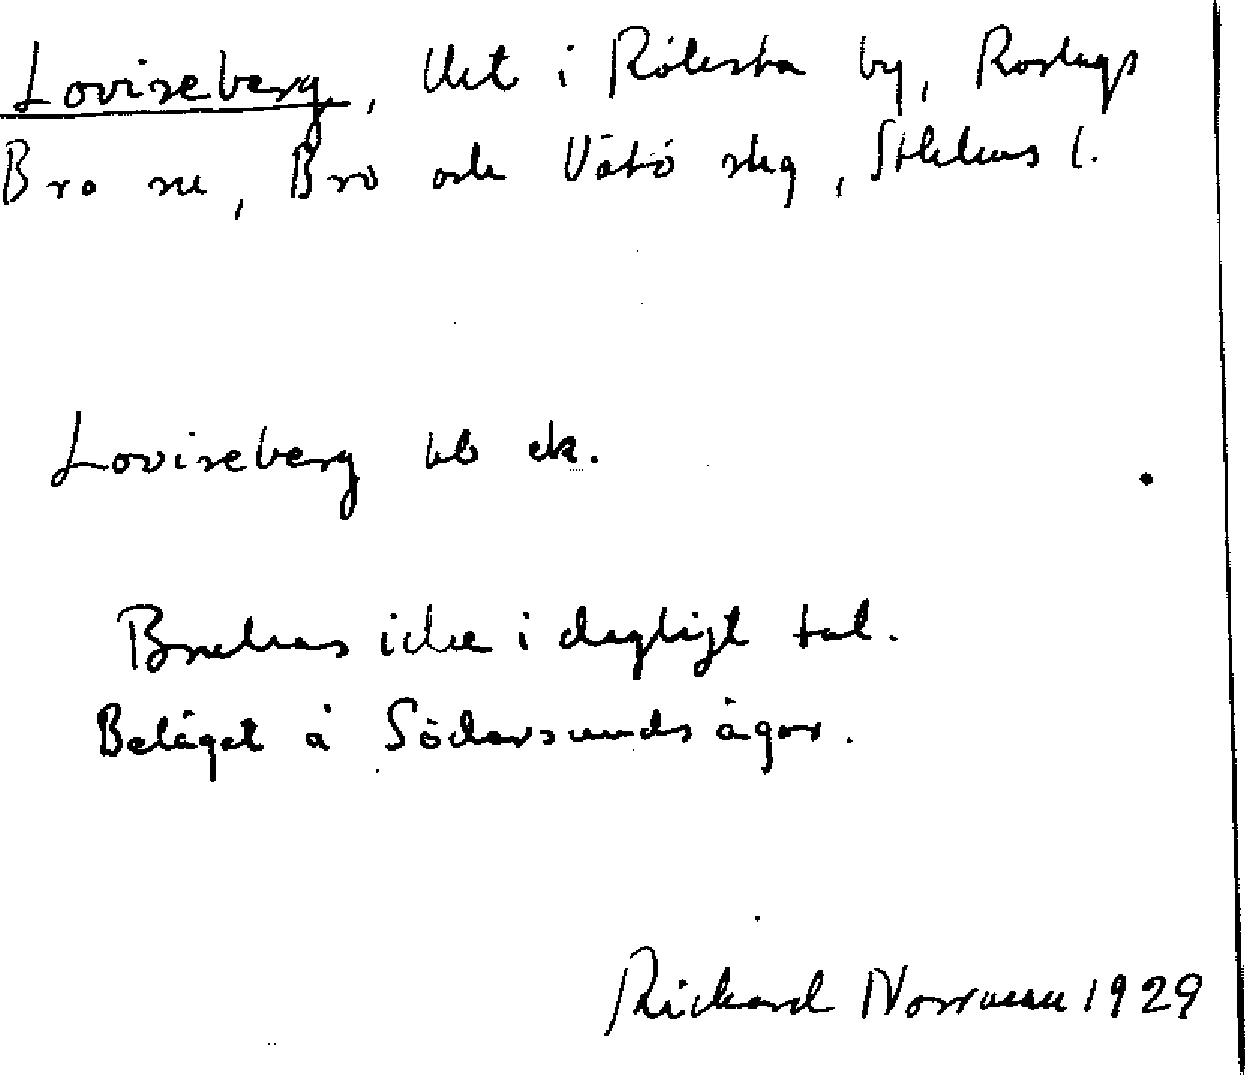 Loviseberg, lht i Rölesta by, Roslags
Bro sn, Bro och Vätö skg, Sthlms l.
Loviseberg ub ek.
Brukas icke i dagligt tal.
Beläget å Södersunds ägor.
Rickard Norrman 1929